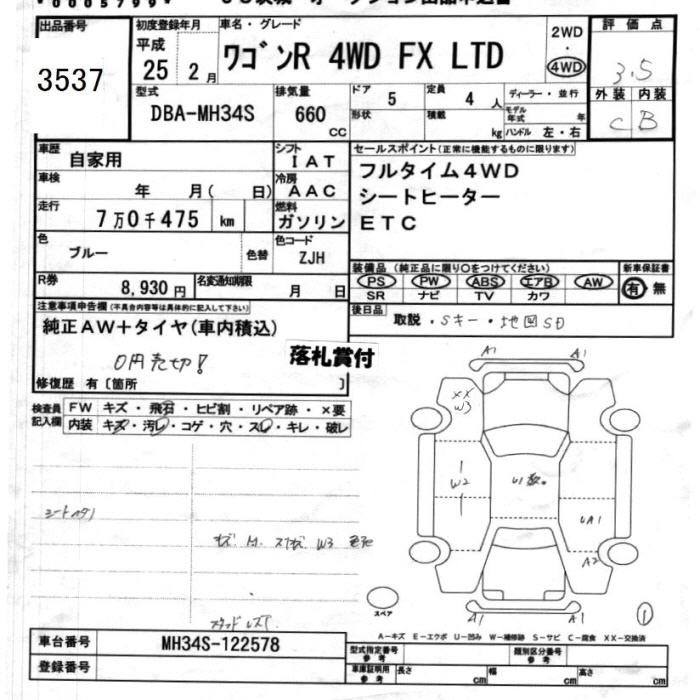 *0005799*
出品番号
3537
初度登録年月
平成
25 2月
車名・グレード
ワゴンR 4WD FX LTD
2WD
・
4WD
評価点
3.5
外装 内装
C B
型式
DBA-MH34S
排気量
660
CC
ドア
5
定員
4 人
ディーラー・並行
形状
積載
kg
モデル年式 年
ハンドル 左・右
車歴
自家用
シフト
IAT
車検
年 月( 日)
冷房
AAC
走行
7万0千475 km
燃料
ガソリン
色
ブルー
色替
色コード
ZJH
R券
8,930円
名変通知期限
月 日
セールスポイント(正常に機能するものに限ります)
フルタイム4WD
シートヒーター
ETC
装備品(純正品に限り○をつけてください)
PS PW ABS エアB AW
SR ナビ TV カワ
新車保証書
有 無
後日品
取説・Sキー・地図SD
注意事項申告欄(不具合内容等は具体的に記入して下さい)
純正AW+タイヤ(車内積込)
0円売切!
落札賞付
修復歴 有〔箇所 〕
検査員記入欄
FW キズ・飛石・ヒビ割・リペア跡・×要
内装 キズ・汚レ・コゲ・穴・スレ・キレ・破レ
A1 A1
XX
W3
W2
U1散。
UA1
A2
スペア
A1 A1
1
W3
A-キズ E-エクボ U-凹み W-補修跡 S-サビ C-腐食 XX-交換済
車台番号
MH34S-122578
登録番号
型式指定番号
参考
類別区分番号
参考
車庫証明用
参考
長さ cm
幅 cm
高さ cm